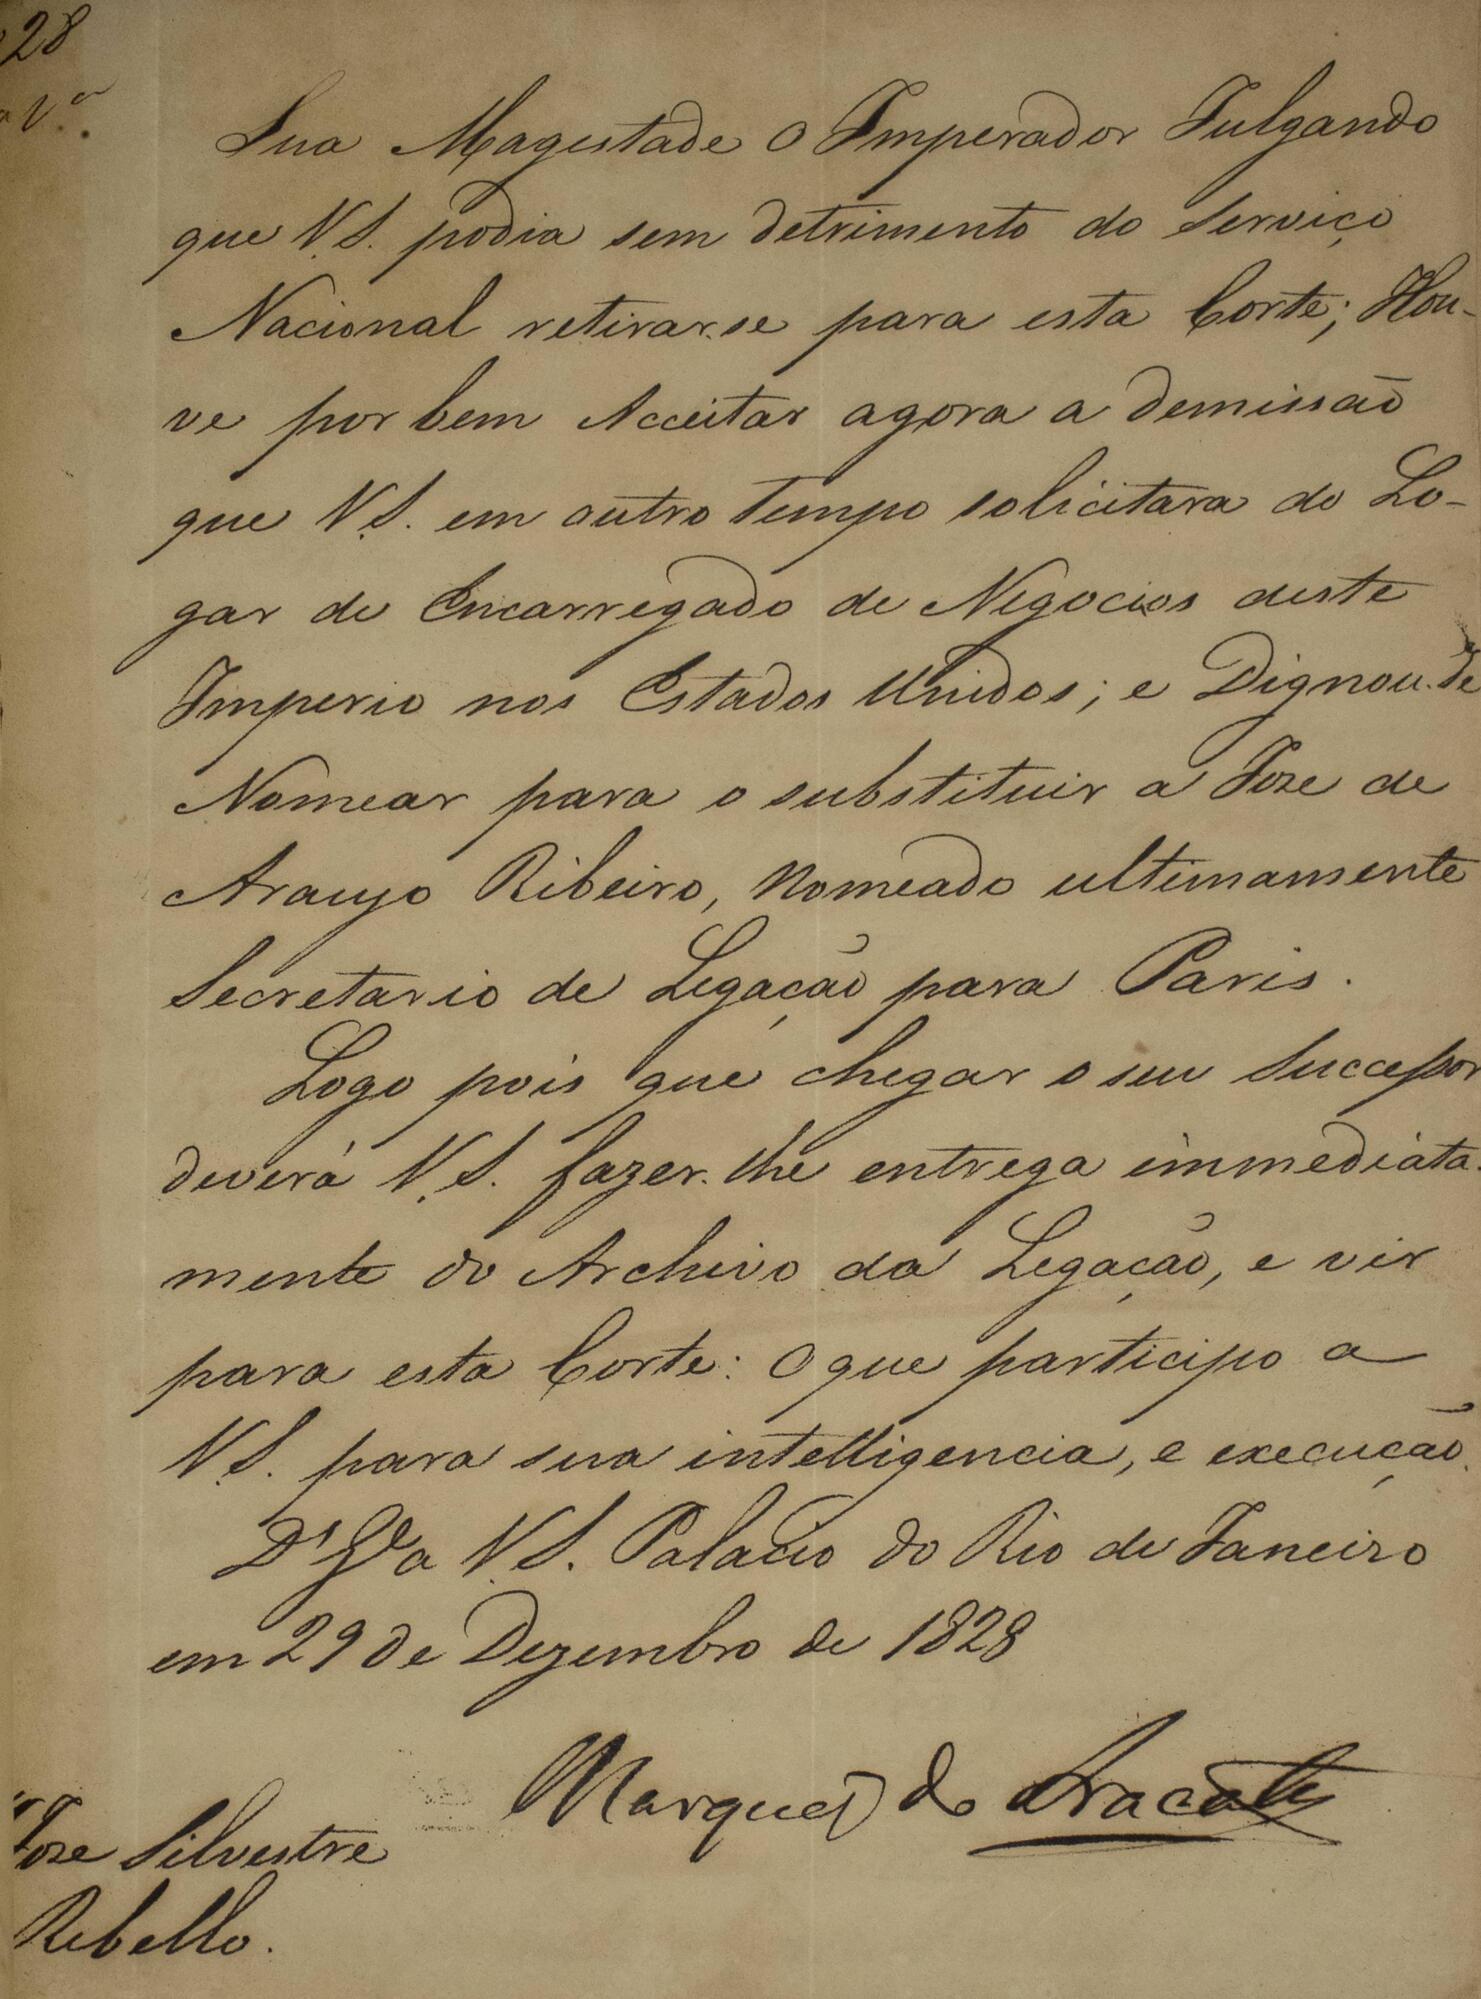 28
Sua Magestade o Imperador Julgando
que V.S. podia sem detrimento do Serviço
Nacional retirar-se para esta Corte; Hou-
ve por bem Acceitar agora a demissão
que V.S. em outro tempo solicitara do Lo-
gar de Encarregado de Negocios deste
Imperio nos Estados Unidos; e Dignou-Se
Nomear para o substituir a Joze de
Araujo Ribeiro, Nomeado ultimamente
Secretario de Legação para Paris.
Logo pois que chegar o seu Successor
deverá V.S. fazer-lhe entrega immediata-
mente do Archivo da Legação, e vir
para esta Corte: O que participo a
V.S. para sua intelligencia, e execução.
Ds Ge a V.S. Palacio do Rio de Janeiro
em 29 de Dezembro de 1828
Marquez do Aracaty
Joze Silvestre
Rebello.